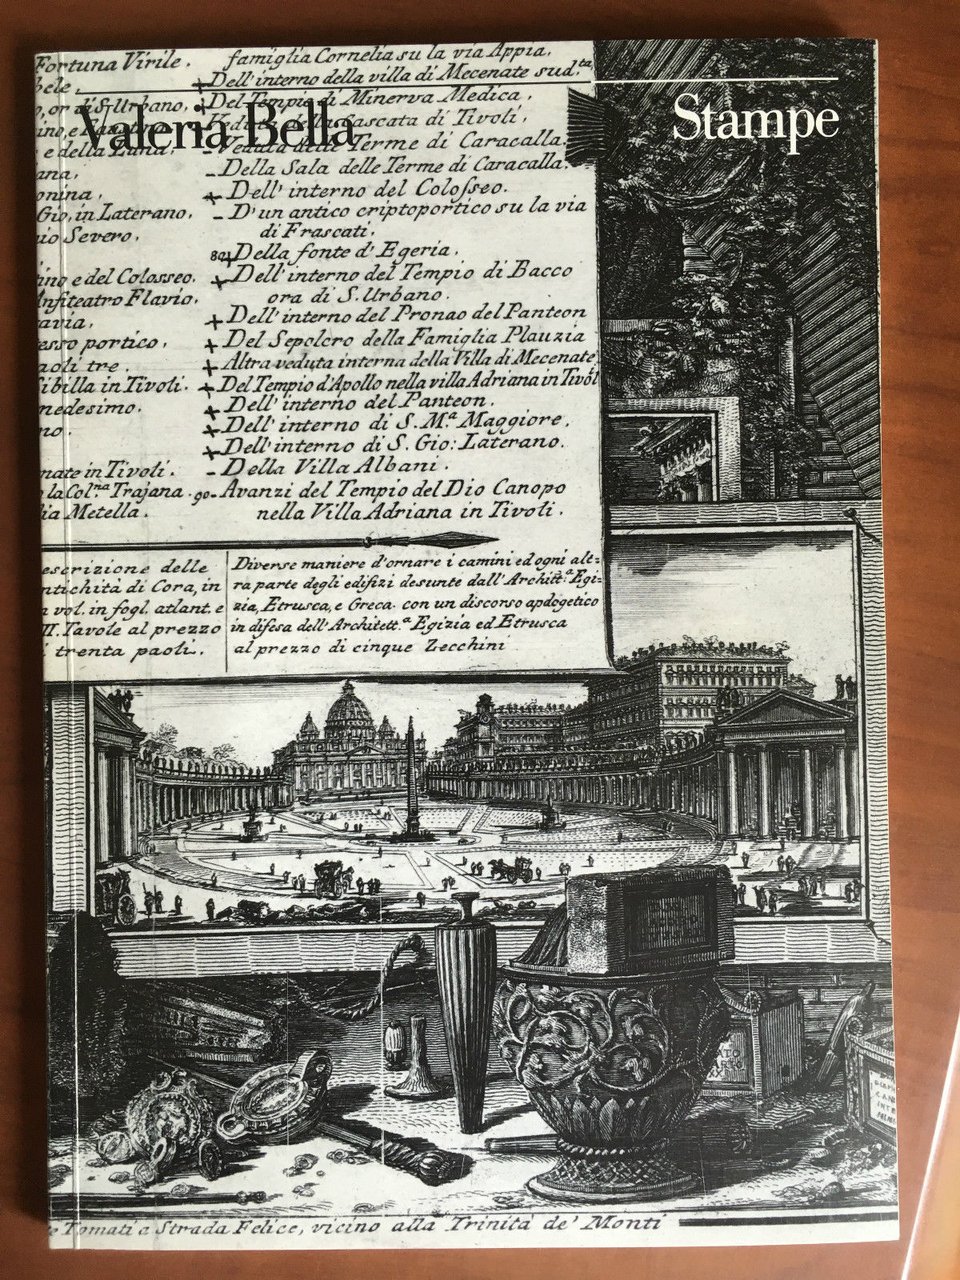 Valeria Bella
Stampe
Fortuna Virile.
bele.
o, or di S. Urbano,
ana,
onina,
Gio, in Laterano,
io Severo,
tino e del Colosseo.
Anfiteatro Flavio.
avia,
esso portico,
aoli tre.
Sibilla in Tivoli.
medesimo.
no.
nate in Tivoli.
la Col.na Trajana.
lia Metella.
famiglia Cornelia su la via Appia,
Dell'interno della villa di Mecenate sud.ta
Del Tempio di Minerva Medica,
della Cascata di Tivoli,
Terme di Caracalla.
Della Sala delle Terme di Caracalla.
Dell'interno del Colosseo.
D'un antico criptoportico su la via
di Frascati.
Della fonte d'Egeria,
Dell'interno del Tempio di Bacco
ora di S. Urbano.
Dell'interno del Pronao del Panteon
Del Sepolcro della Famiglia Plauzia
Altra veduta interna della Villa di Mecenate
Del Tempio d'Apollo nella villa Adriana in Tivol
Dell'interno del Panteon.
Dell'interno di S. M.a Maggiore.
Dell'interno di S. Gio: Laterano.
Della Villa Albani.
90 Avanzi del Tempio del Dio Canopo
nella Villa Adriana in Tivoli.
escrizione delle
ntichità di Cora, in
n vol. in fogl. atlant. e
II. Tavole al prezzo
i trenta paoli.
Diverse maniere d'ornare i camini ed ogni alt-
ra parte degli edifizi desunte dall'Archit.a Egi-
zia, Etrusca, e Greca. con un discorso apologetico
in difesa dell'Architett.a Egizia ed Etrusca
al prezzo di cinque Zecchini
Tomati a Strada Felice, vicino alla Trinità de' Monti